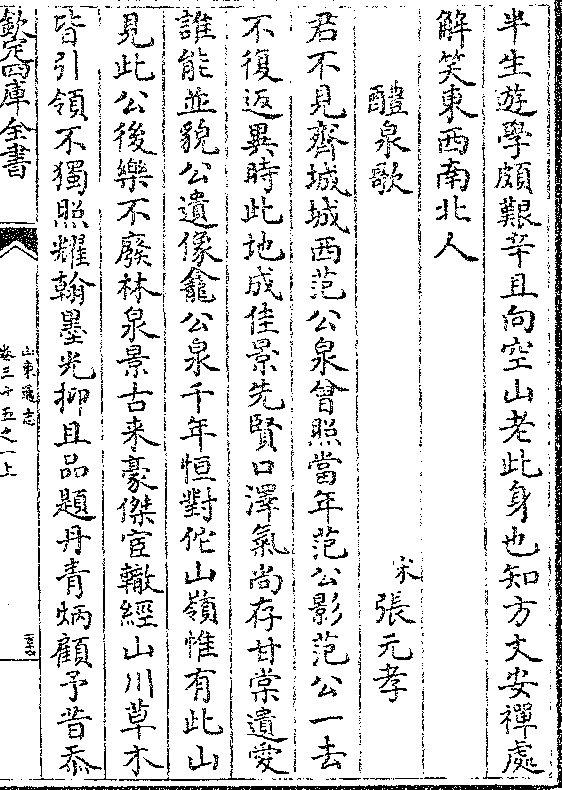 半生遊學頗艱辛且向空山老此身也知方丈安禪處
解笑東西南北人
醴泉歌
宋
張元孝
君不見齊城城西范公泉曾照當年范公影范公一去
不復返異時此地成佳景先賢口澤氣尚存甘棠遺愛
誰能並貌公遺像龕公泉千年恒對佗山嶺惟有此山
見此公後樂不廢林泉景古来豪傑宦轍經山川草木
皆引領不獨照耀翰墨光抑且品題丹青炳顧予昔忝
欽定四庫全書
山東通志
卷三十五之一上